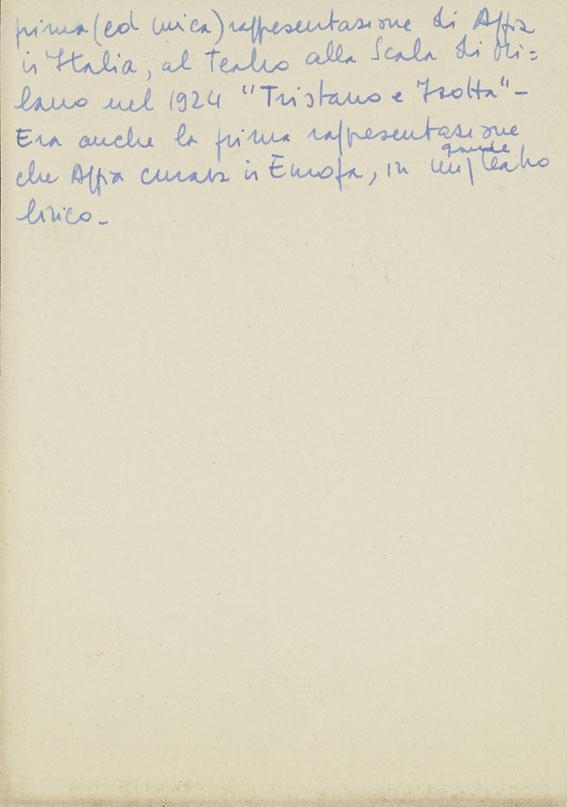 prima (ed unica) rappresentazione di Appia
in Italia, al Teatro alla Scala di Mi=
lano nel 1924 "Tristano e Isotta"-
Era anche la prima rappresentazione
che Appia curava in Europa, in un grande teatro
lirico-